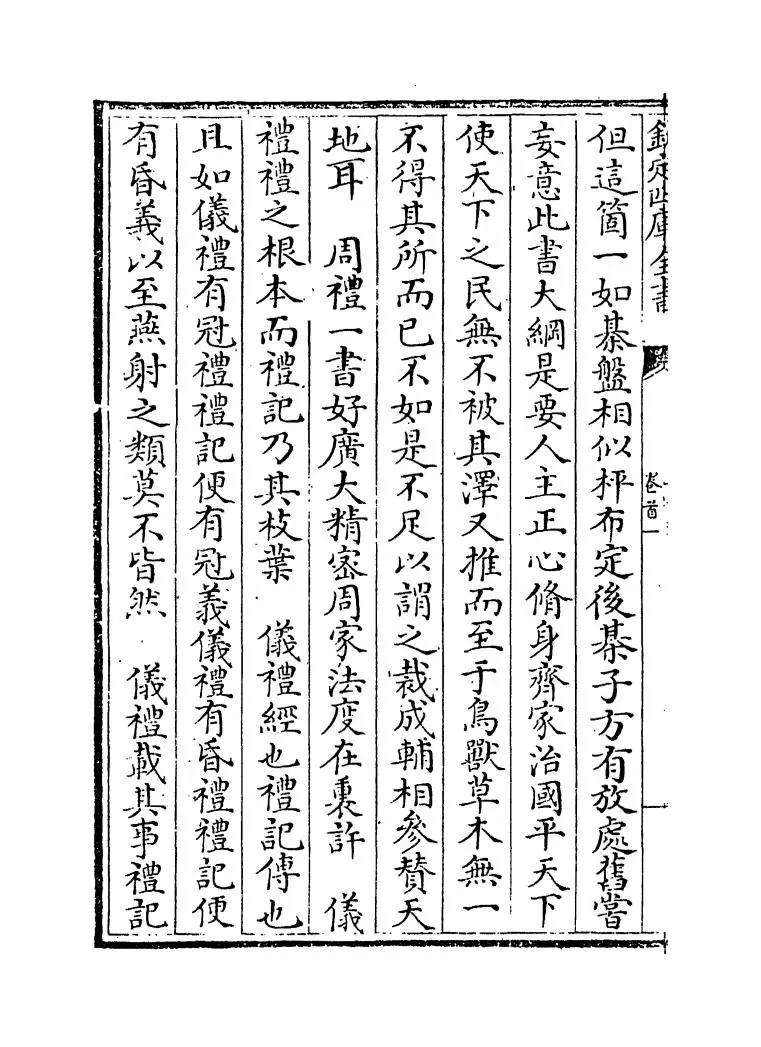 欽定四庫全書
卷首一
但這箇一如棊盤相似枰布定後棊子方有放處舊嘗
妄意此書大綱是要人主正心脩身齊家治國平天下
使天下之民無不被其澤又推而至于鳥獸草木無一
不得其所而已不如是不足以謂之裁成輔相參贊天
地耳　周禮一書好廣大精密周家法度在裏許　儀
禮禮之根本而禮記乃其枝葉　儀禮經也禮記傳也
且如儀禮有冠禮禮記便有冠義儀禮有昏禮禮記便
有昏義以至燕射之類莫不皆然　儀禮載其事禮記